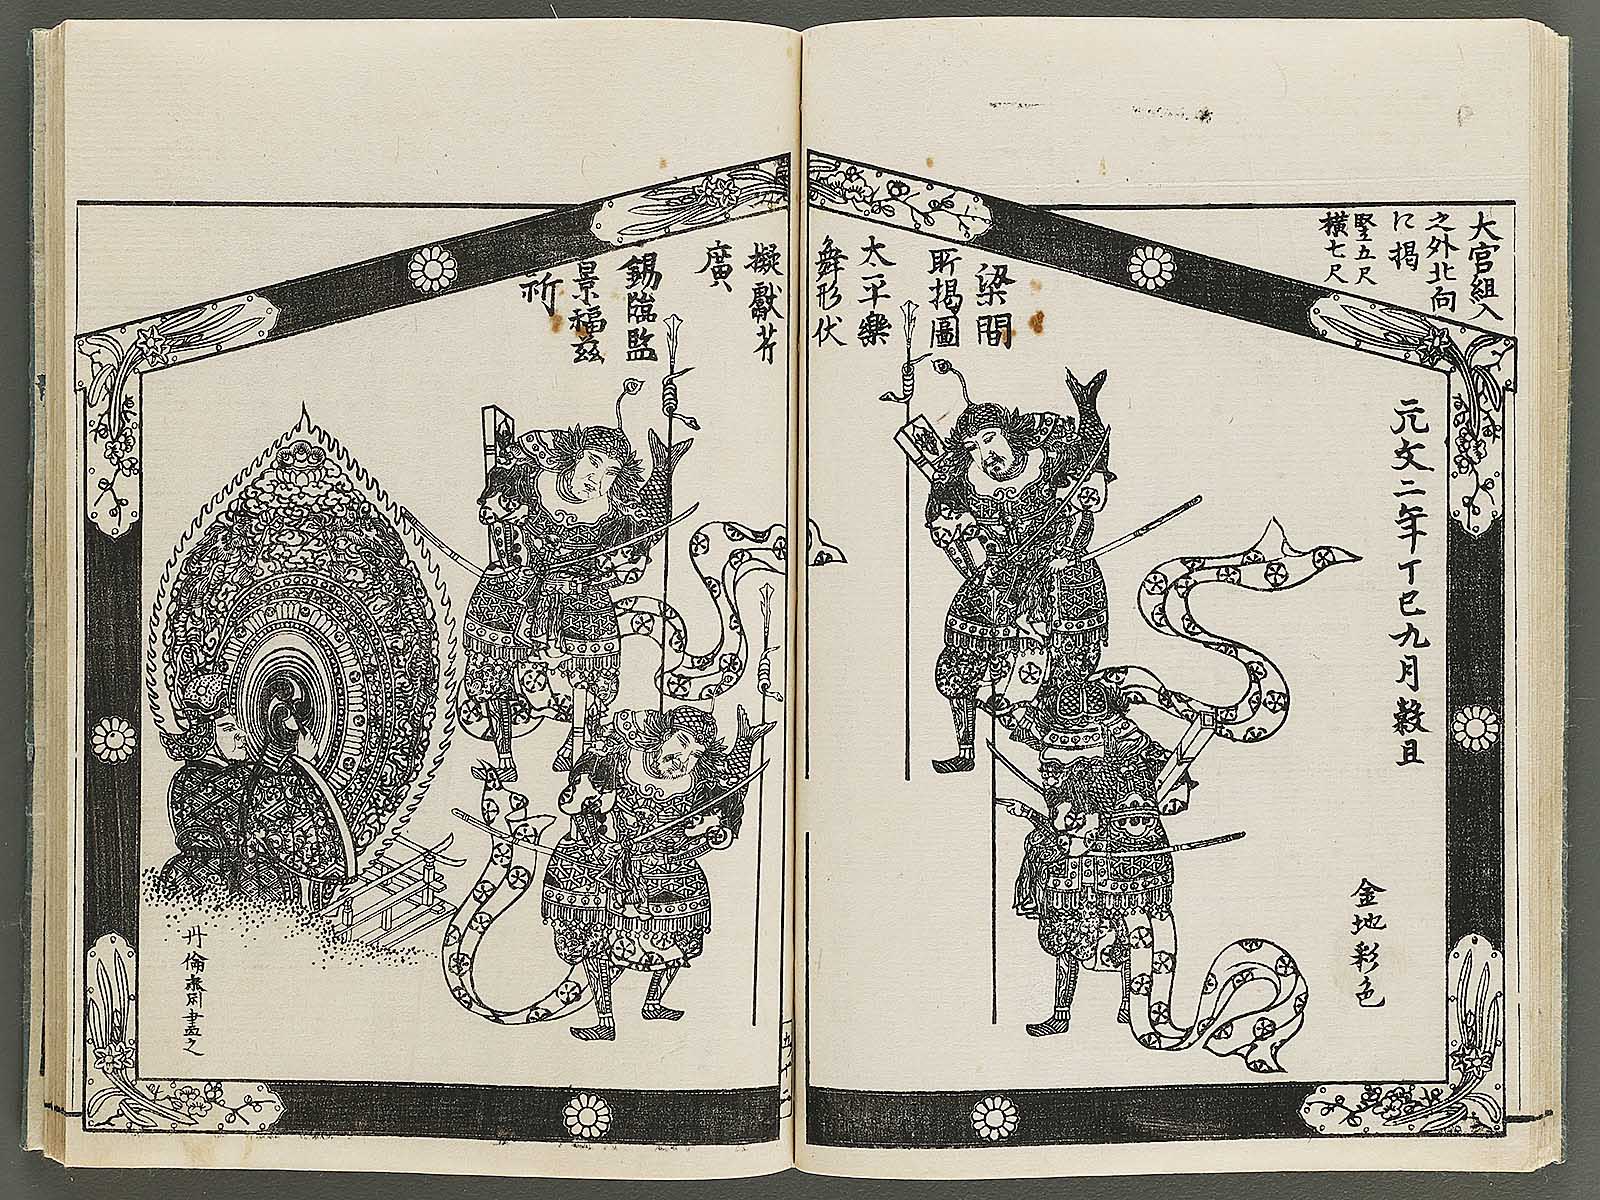 大宮組入
之外北向
に掲
竪五尺
横七尺
元文二年丁巳九月穀旦
金地彩色
梁間
所掲圖
太平樂
舞形伏
擬獻芹
廣
錫臨監
景福茲
祈
丹倫齋画之